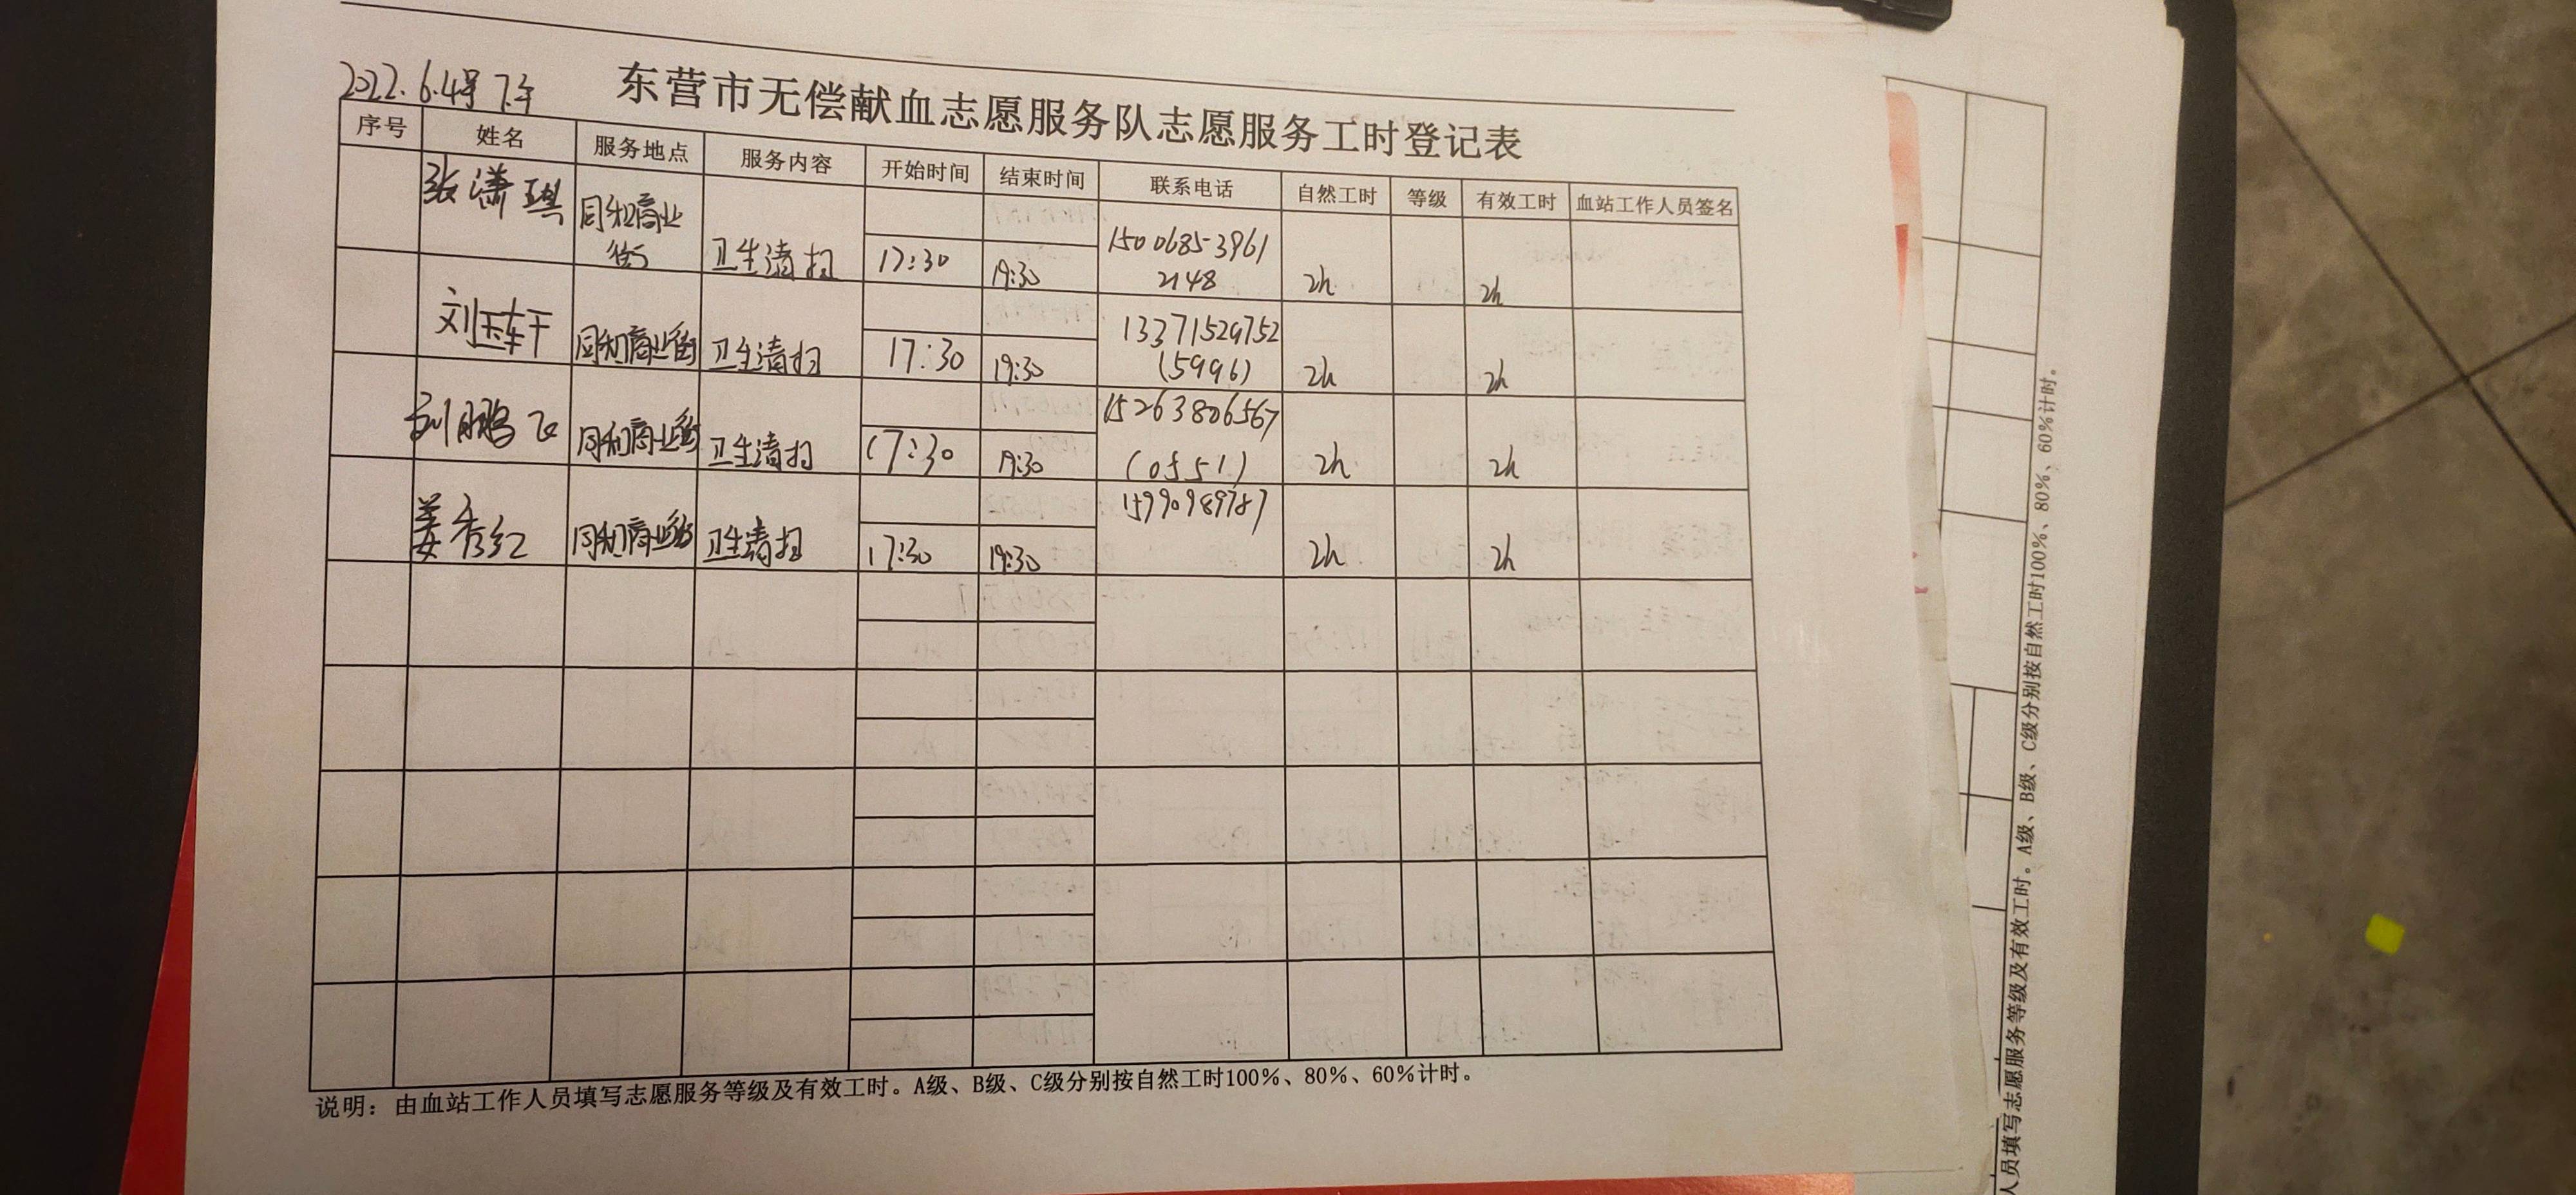 2022.6.4号 下午
东营市无偿献血志愿服务队志愿服务工时登记表
序号 姓名 服务地点 服务内容 开始时间 结束时间 联系电话 自然工时 等级 有效工时 血站工作人员签名
张潇琪 同和商业街 卫生清扫 17:30 19:30 15006853961 2148 2h 2h
刘 同和商业街 卫生清扫 17:30 19:30 13371529752 (5996) 2h 2h
刘鹏飞 同和商业街 卫生清扫 17:30 19:30 15263806567 (0551) 2h 2h
姜秀红 同和商业街 卫生清扫 17:30 19:30 2h 2h
说明：由血站工作人员填写志愿服务等级及有效工时。A级、B级、C级分别按自然工时100%、80%、60%计时。
人员填写志愿服务等级及有效工时。A级、B级、C级分别按自然工时100%、80%、60%计时。